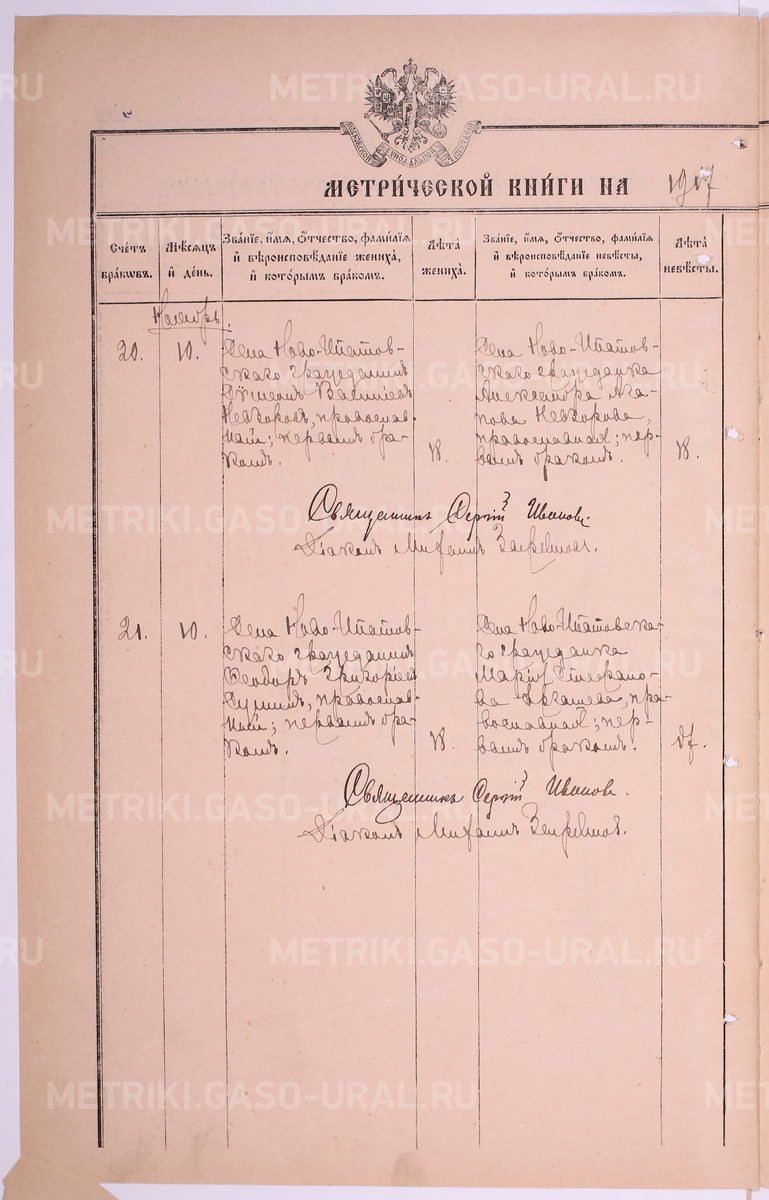 МОСКОВСКОЙ СѴНОДАЛЬНОЙ ТИПОГРАФІИ
МЕТРИ́ЧЕСКОЙ КНИ́ГИ НА 1917
Сче́тъ бра́кѡвъ.
Мѣ́сяцъ и҆ де́нь.
Зва́нїе, и҆́мѧ, ѻ҆́тчество, фами́лїѧ и҆ вѣроисповѣ́данїе жениха̀, и҆ кото́рымъ бра́комъ.
Лѣ́та жениха̀.
Зва́нїе, и҆́мѧ, ѻ҆́тчество, фами́лїѧ и҆ вѣроисповѣ́данїе невѣ́сты, и҆ кото́рымъ бра́комъ.
Лѣ́та невѣ́сты.
Ноябрь.
20.
10.
Села Ново-Ипатов-
скаго гражданинъ
Васильев
Невзоровъ, православ-
ный; первымъ бра-
комъ.
18.
Села Ново-Ипатов-
скаго гражданка
Александра Ага-
пова Невзорова,
православная; пер-
вымъ бракомъ.
18.
Священникъ Сергій Иванов.
Діаконъ
21.
10.
Села Ново-Ипатов-
скаго гражданинъ
Ѳеодоръ Григоріев
православ-
ный; первымъ бра-
комъ.
18.
Села Ново-Ипатовска-
го гражданка
Марія Стефано-
ва пра-
вославная; пер-
вымъ бракомъ.
Священникъ Сергій Иванов.
Діаконъ
METRIKI.GASO-URAL.RU